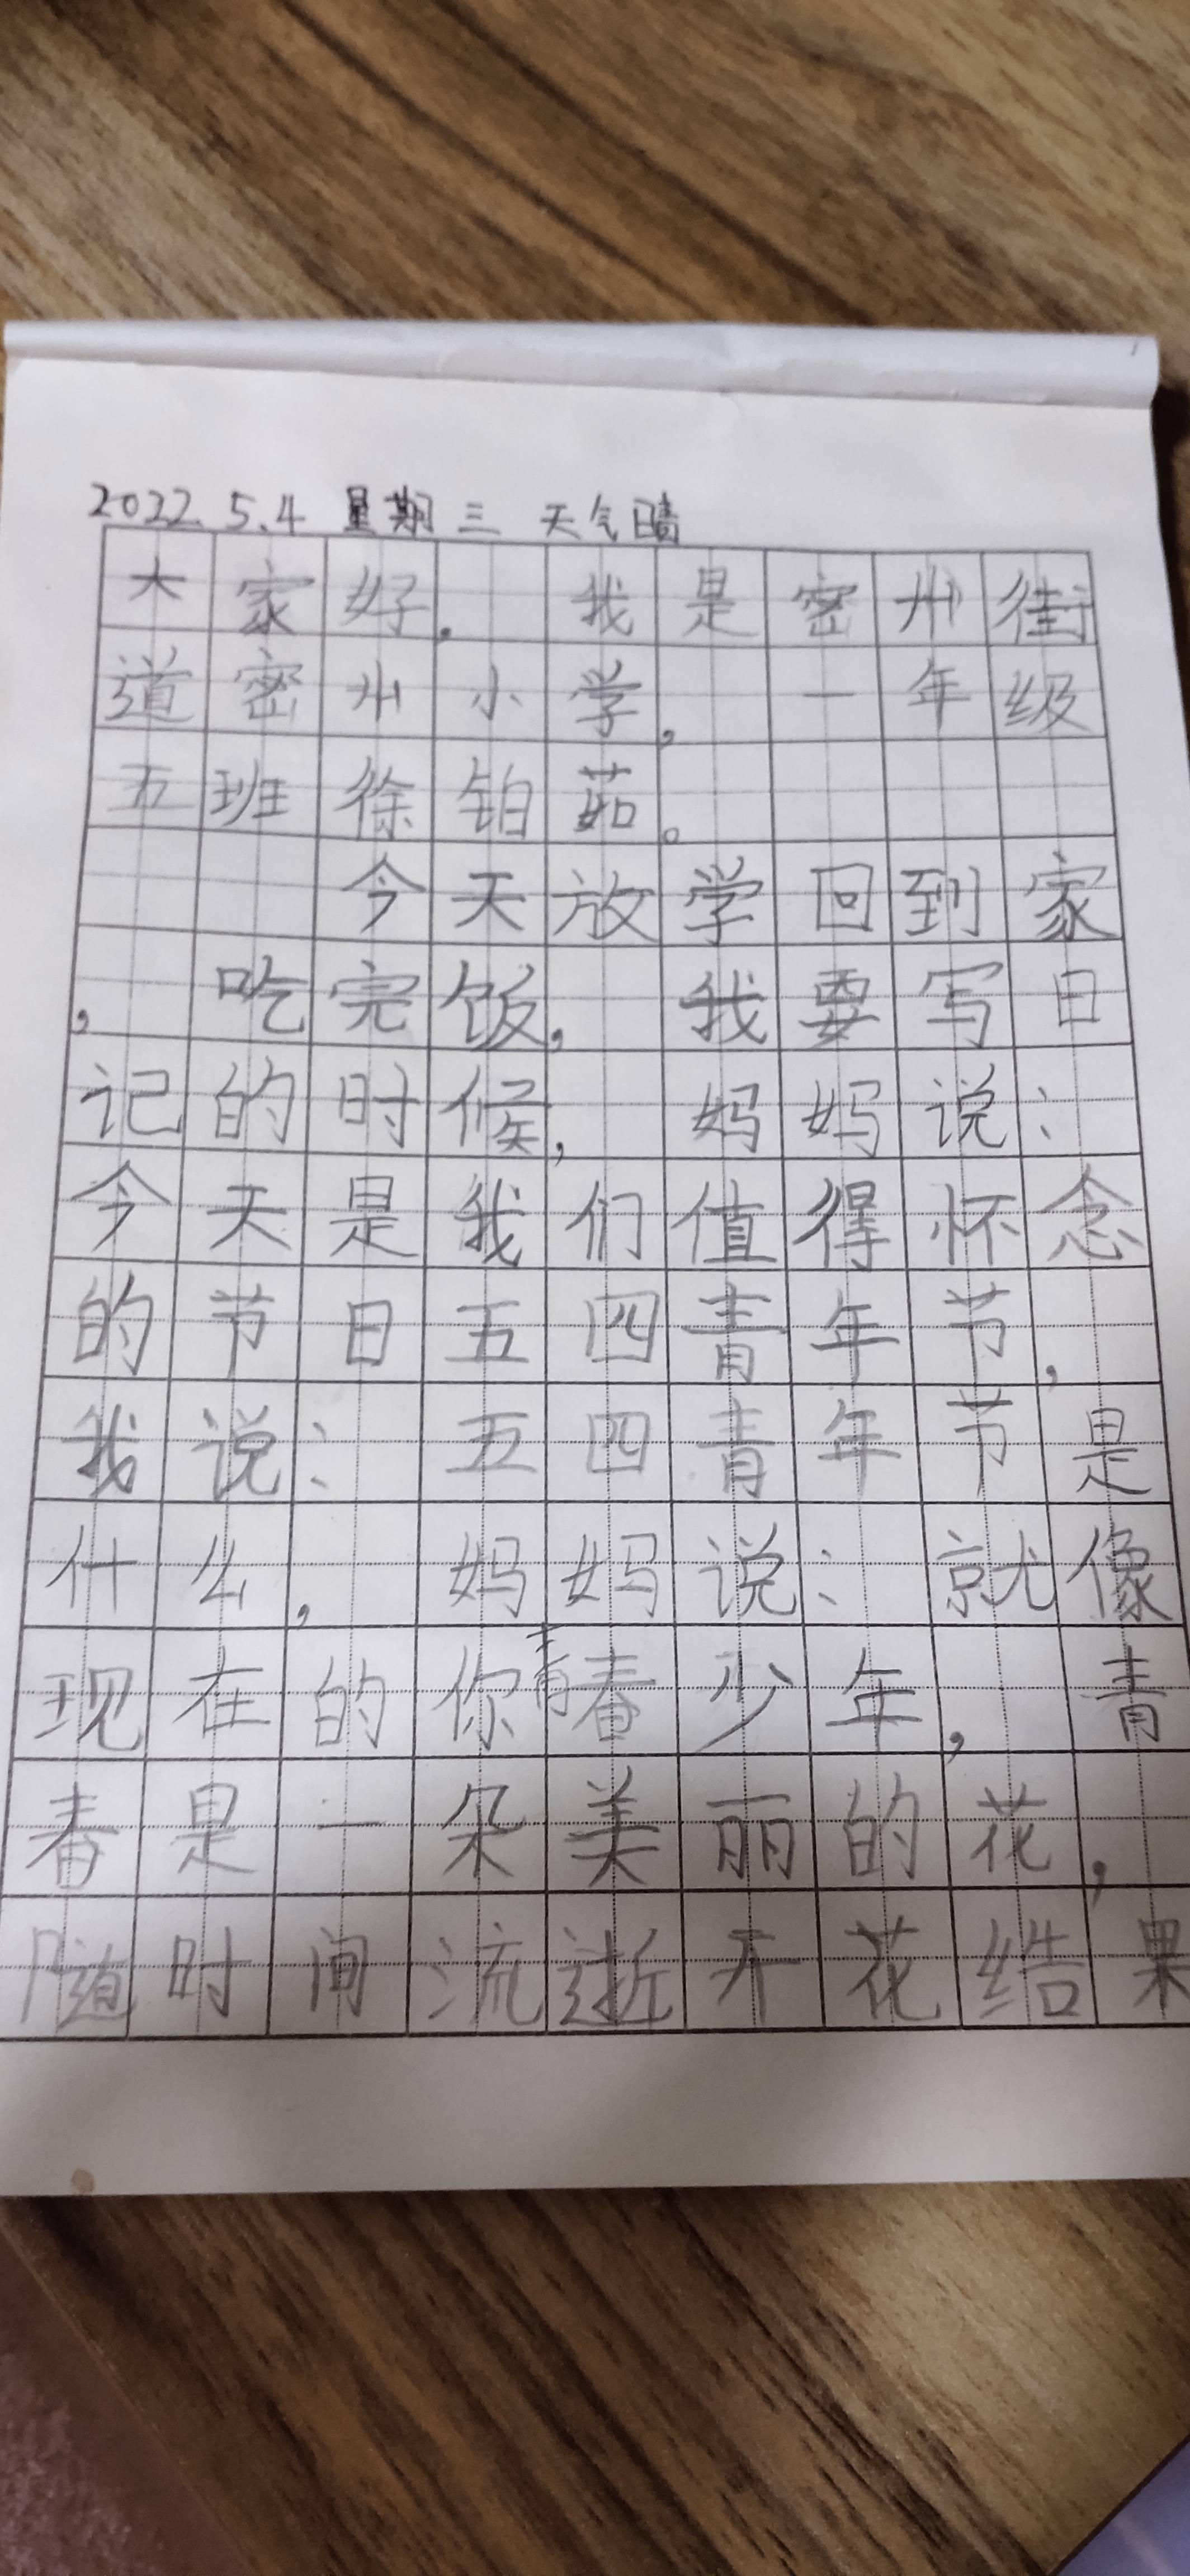 2022.5.4 星期三 天气晴
大家好. 我是密州街
道密州小学, 一年级
五班徐铂茹。
今天放学回到家
, 吃完饭, 我要写日
记的时候, 妈妈说:
今天是我们值得怀念
的节日五四青年节,
我说: 五四青年节是
什么, 妈妈说: 就像
现在的你青春少年, 青
春是一朵美丽的花,
随时间流逝开花结果